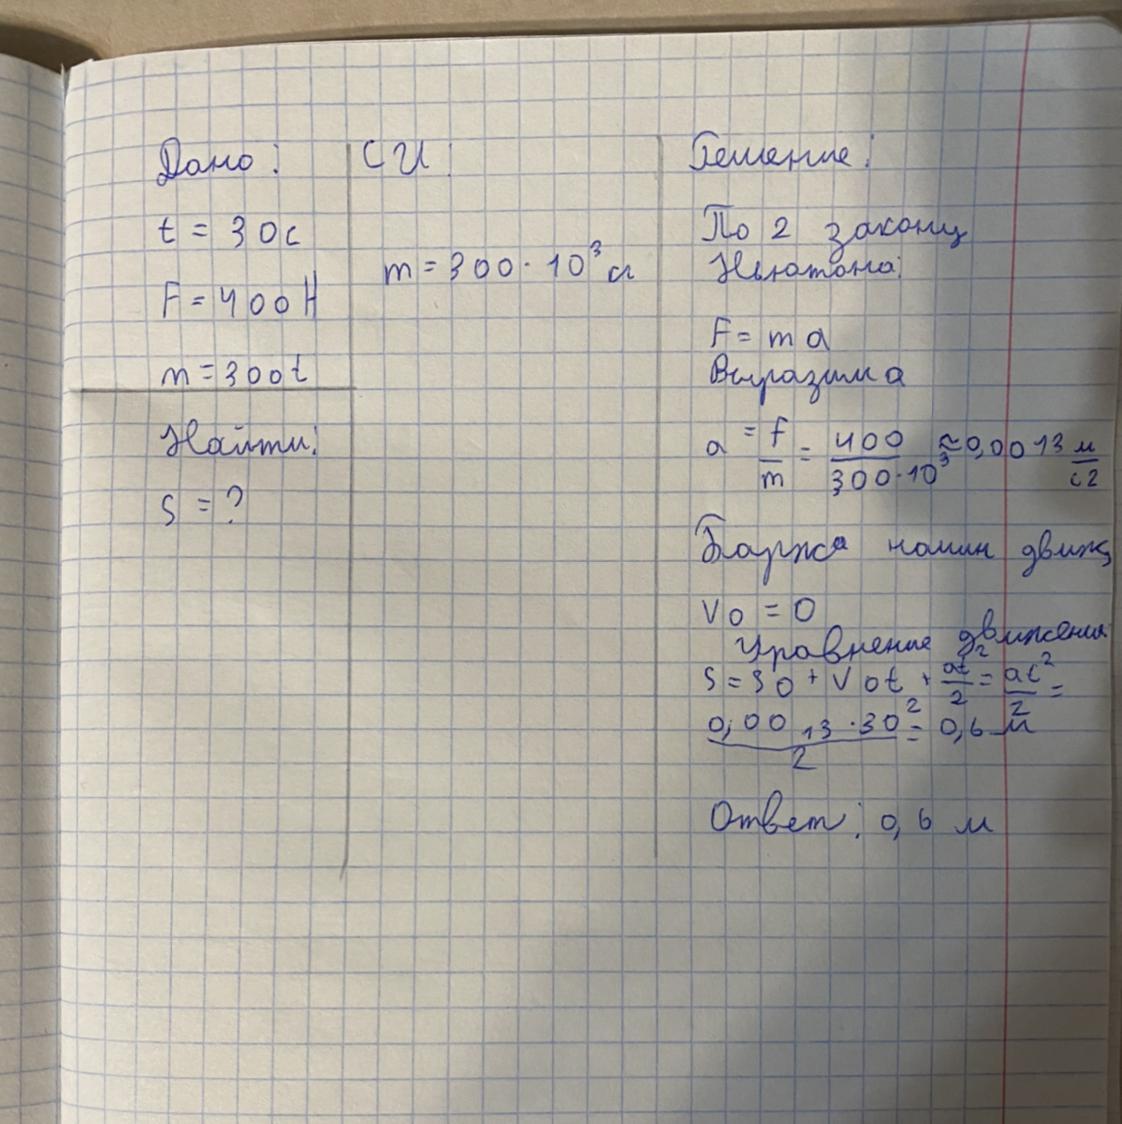 Дано:
t = 30с
F = 400Н
m = 300t
Найти:
S = ?
СИ:
m = 300 · 10³
Решение:
По 2 закону
Ньютона:
F = ma
Выразим a
a = f/m = 400/300·10³ ≈ 0,0013 м/с2
Баржа начин движ
V0 = 0
Уравнение движения
S = S0 + V0t + at²/2 = at²/2 =
0,0013·30²/2 = 0,6 м
Ответ: 0,6 м